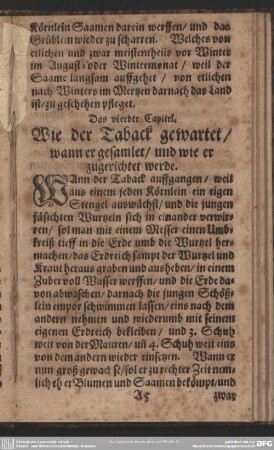 Körnlein Saamen darein werffen/ und das
Grüblein wieder zu scharren. Welches von
etlichen und zwar meistentheils vor Winter
im August- oder Wintermonat/ weil der
Saame langsam auffgehet/ von etlichen
nach Winters im Mertzen darnach das Land
ist/ zu geschehen pfleget.
Das vierdte Capitel.
Wie der Taback gewartet/
wann er gesamlet/ und wie er
zugerichtet werde.
WAnn der Taback auffgangen/ weil
aus einem jeden Körnlein ein eigen
Stengel auswächst/ und die jungen
fäsichten Wurtzeln sich in einander verwir-
ren/ sol man mit einem Messer einen Umb-
kreiß tieff in die Erde umb die Wurtzel her-
machen/ das Erdreich sampt der Wurtzel und
Kraut heraus graben und ausheben/ in einem
Zuber voll Wasser werffen/ und die Erde da-
von abwaschen/ darnach die jungen Schöß-
lein empor schwimmen lassen/ eins nach dem
andern nehmen und wiederumb mit seinem
eigenen Erdreich bekleiben/ und 3. Schuh
weit von der Mauren/ uñ 4. Schuh weit eins
von dem andern wieder einsetzen. Wann er
nun groß gewachsen ist/ sol er zu rechter Zeit nem-
lich eh er Blumen und Saamen bekömpt/ und
A 5 zwar